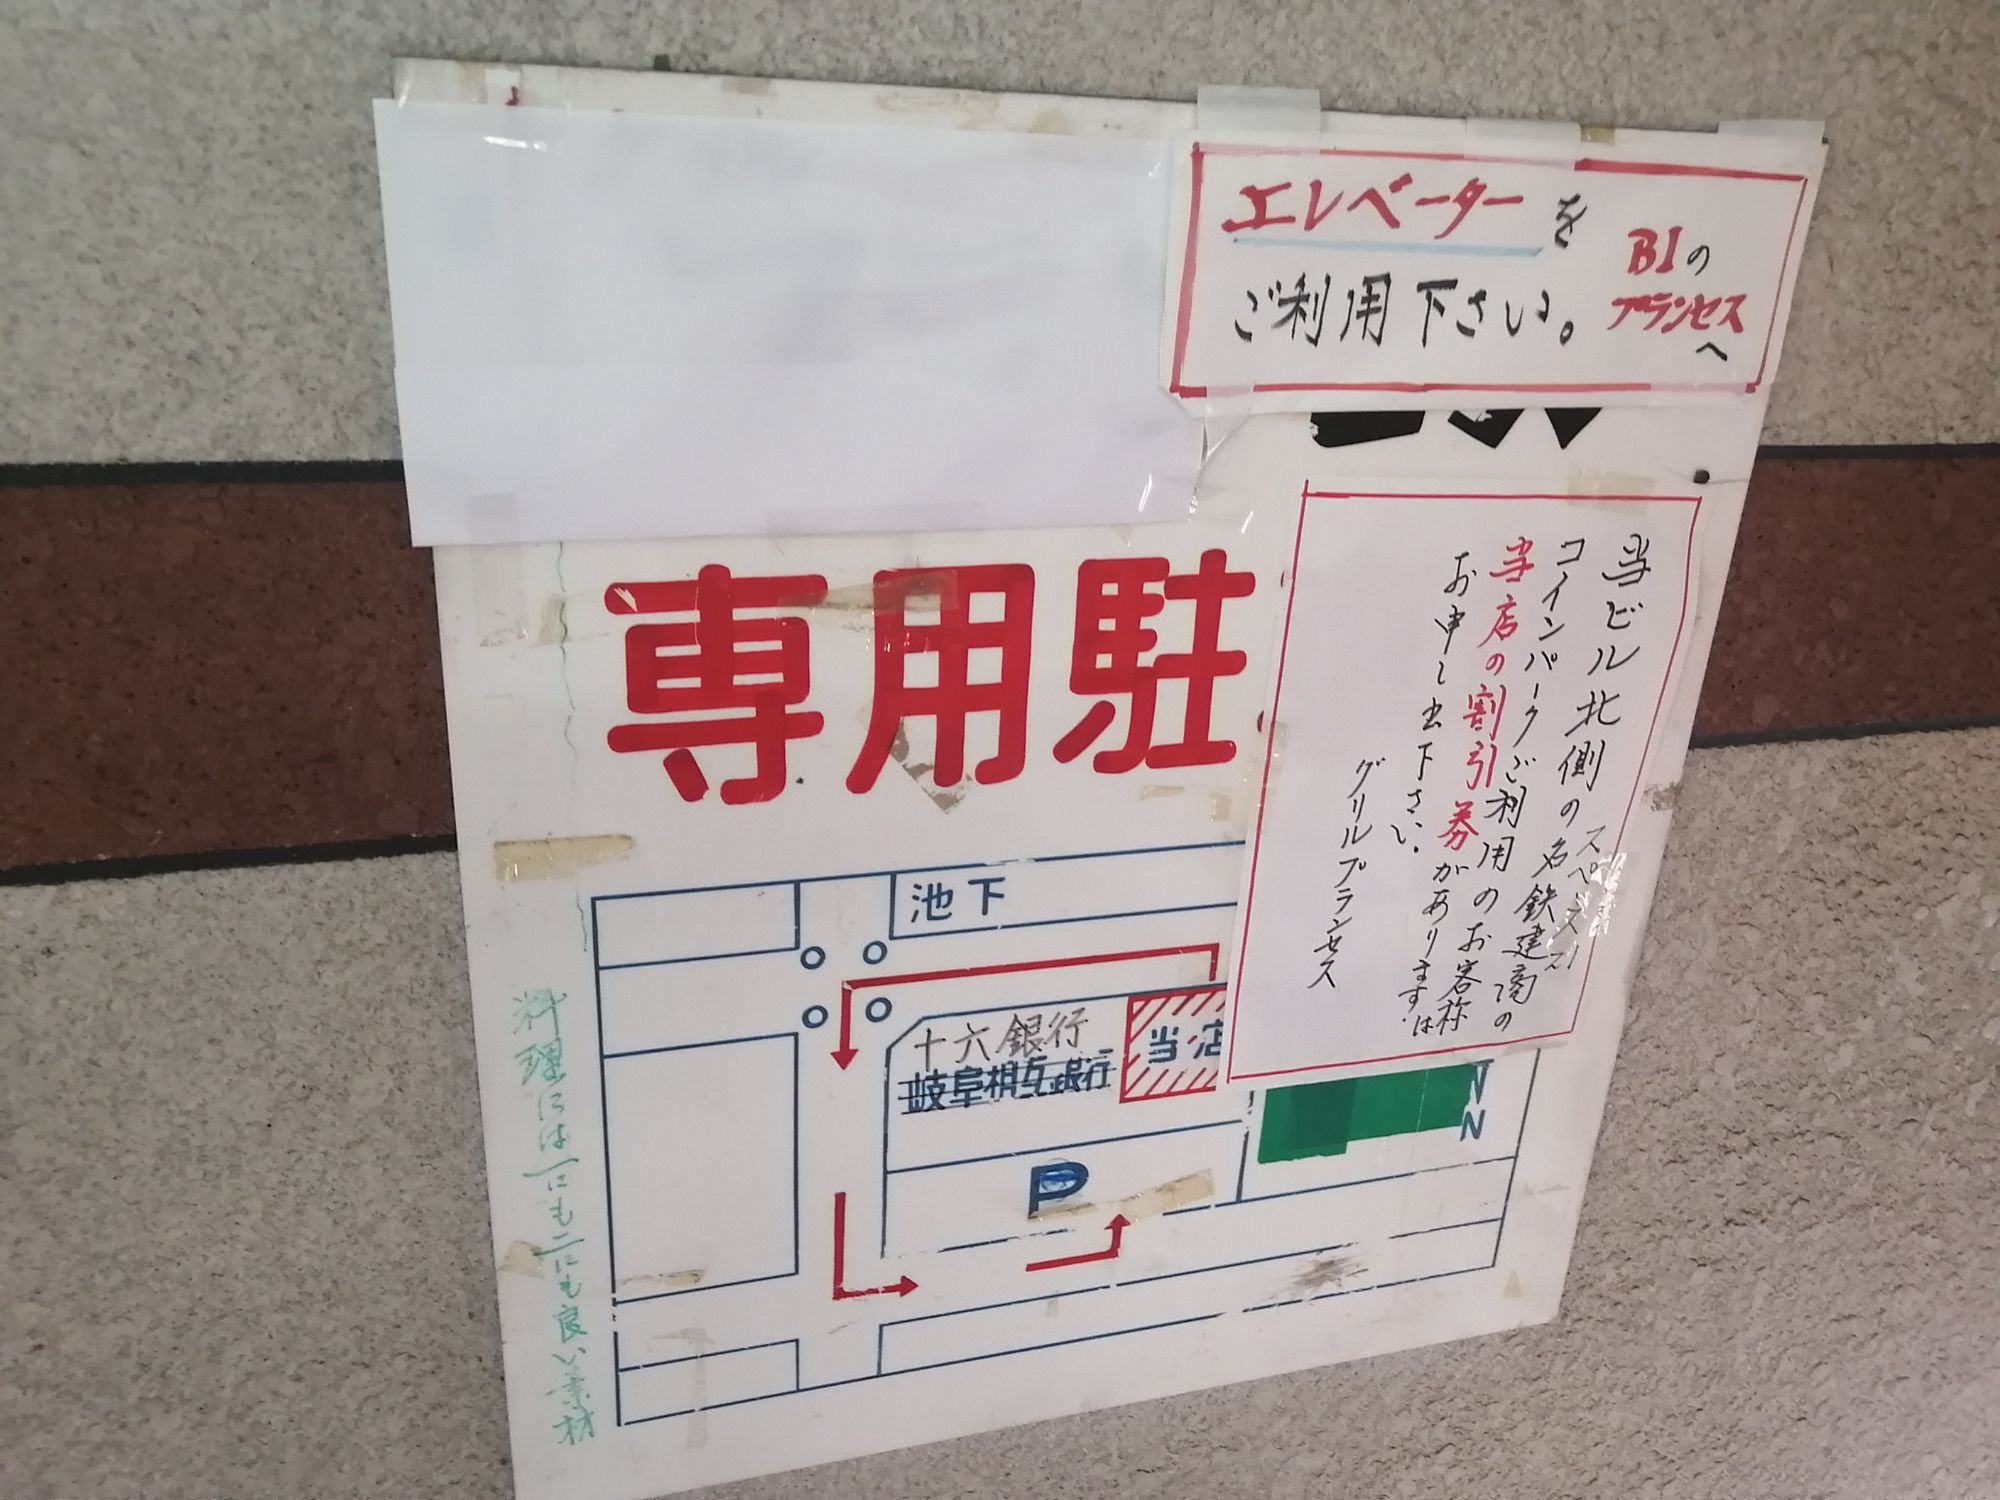 エレベーターを
ご利用下さい。
B1の
プランセス
へ
専用駐
当ビル北側の名鉄建商の
スペース
コインパークご利用のお客称は
当店の割引券があります。
お申し出下さい。
グリルプランセス
池下
十六銀行
岐阜相互銀行
当店
P
N
料理には一にも二にも良い素材